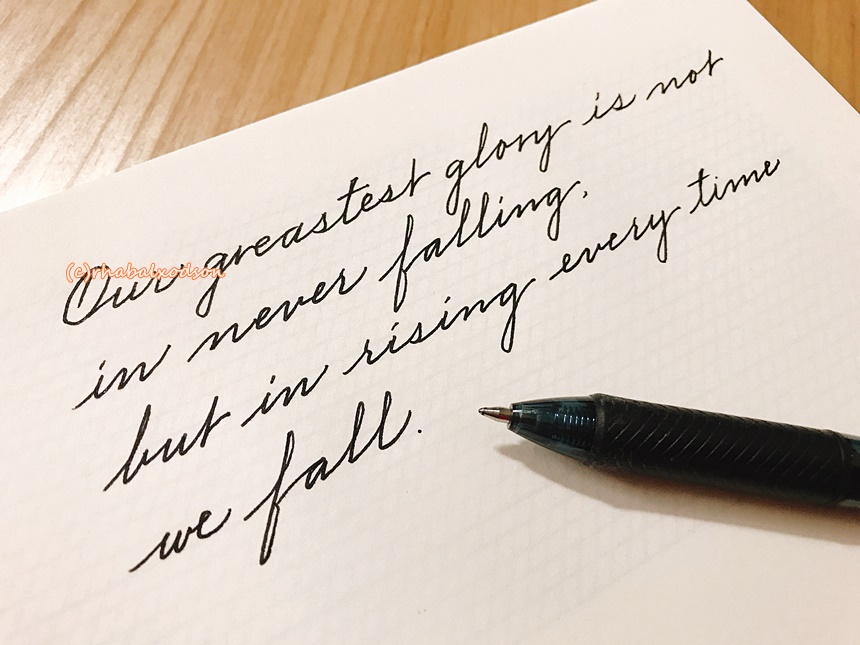 Our greastest glory is not
in never falling,
but in rising every time
we fall.